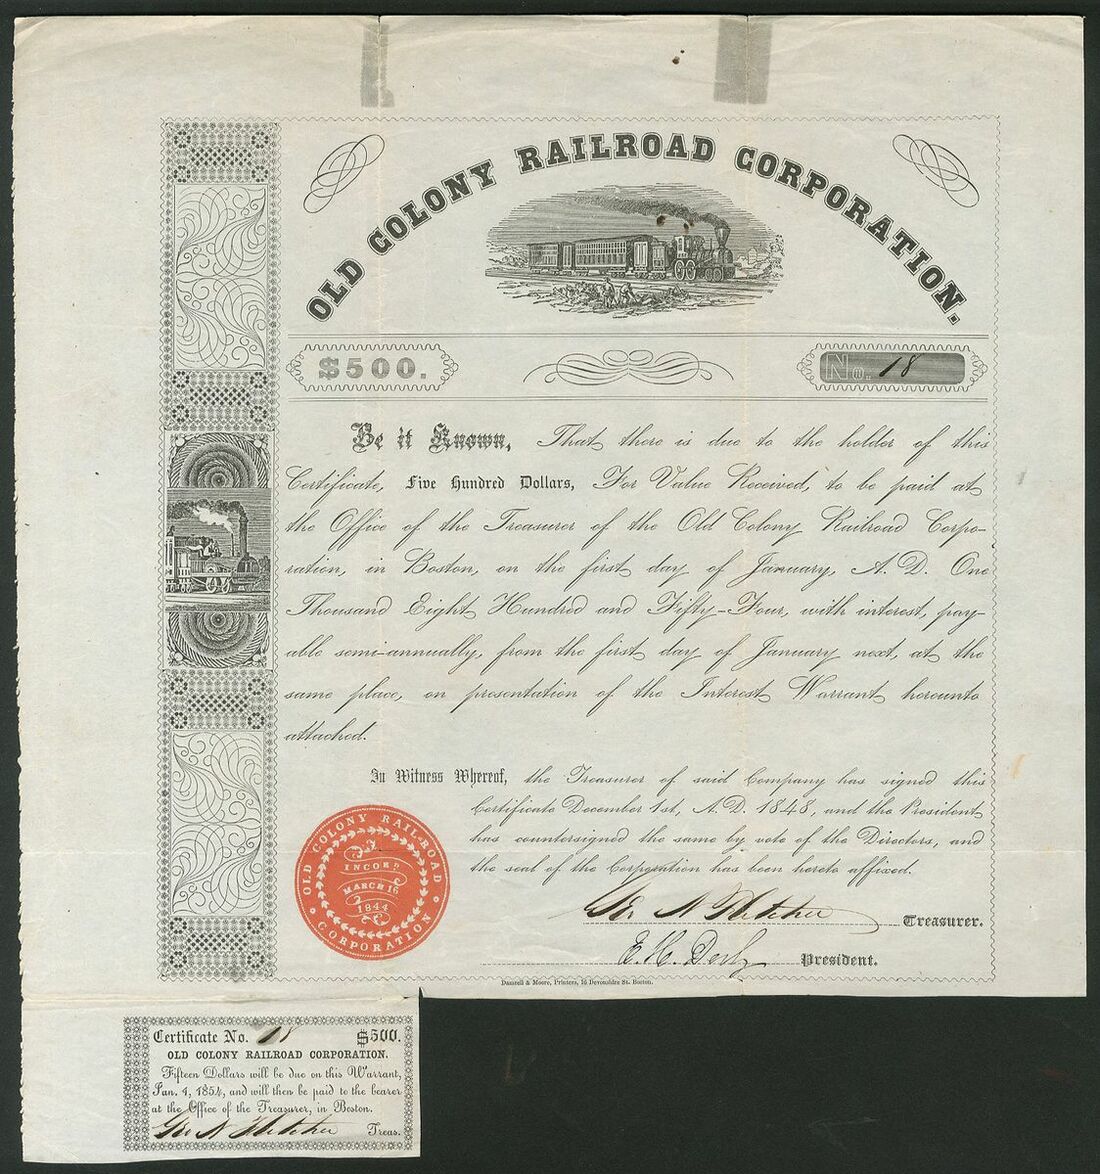 OLD COLONY RAILROAD CORPORATION.
$500.
No. 18
Be it Known, That there is due to the holder of this
Certificate, Five Hundred Dollars, For Value Received, to be paid at
the Office of the Treasurer of the Old Colony Railroad Corpo-
ration, in Boston, on the first day of January, A. D. One
Thousand Eight Hundred and Fifty-Four, with interest, pay-
able semi-annually, from the first day of January next, at the
same place, on presentation of the Interest Warrant hereunto
attached.
In Witness Whereof, the Treasurer of said Company has signed this
Certificate December 1st, A. D. 1848, and the President
has countersigned the same by vote of the Directors, and
the seal of the Corporation has been hereto affixed.
OLD COLONY RAIL-ROAD
CORPORATION
INCORP.
MARCH 16
1844
Geo. N Fletcher Treasurer.
E. H. Derby President.
Damrell & Moore, Printers, 16 Devonshire St. Boston.
Certificate No. 18 $500.
OLD COLONY RAILROAD CORPORATION.
Fifteen Dollars will be due on this Warrant,
Jan. 1, 1854, and will then be paid to the bearer
at the Office of the Treasurer, in Boston.
Geo N Fletcher Treas.